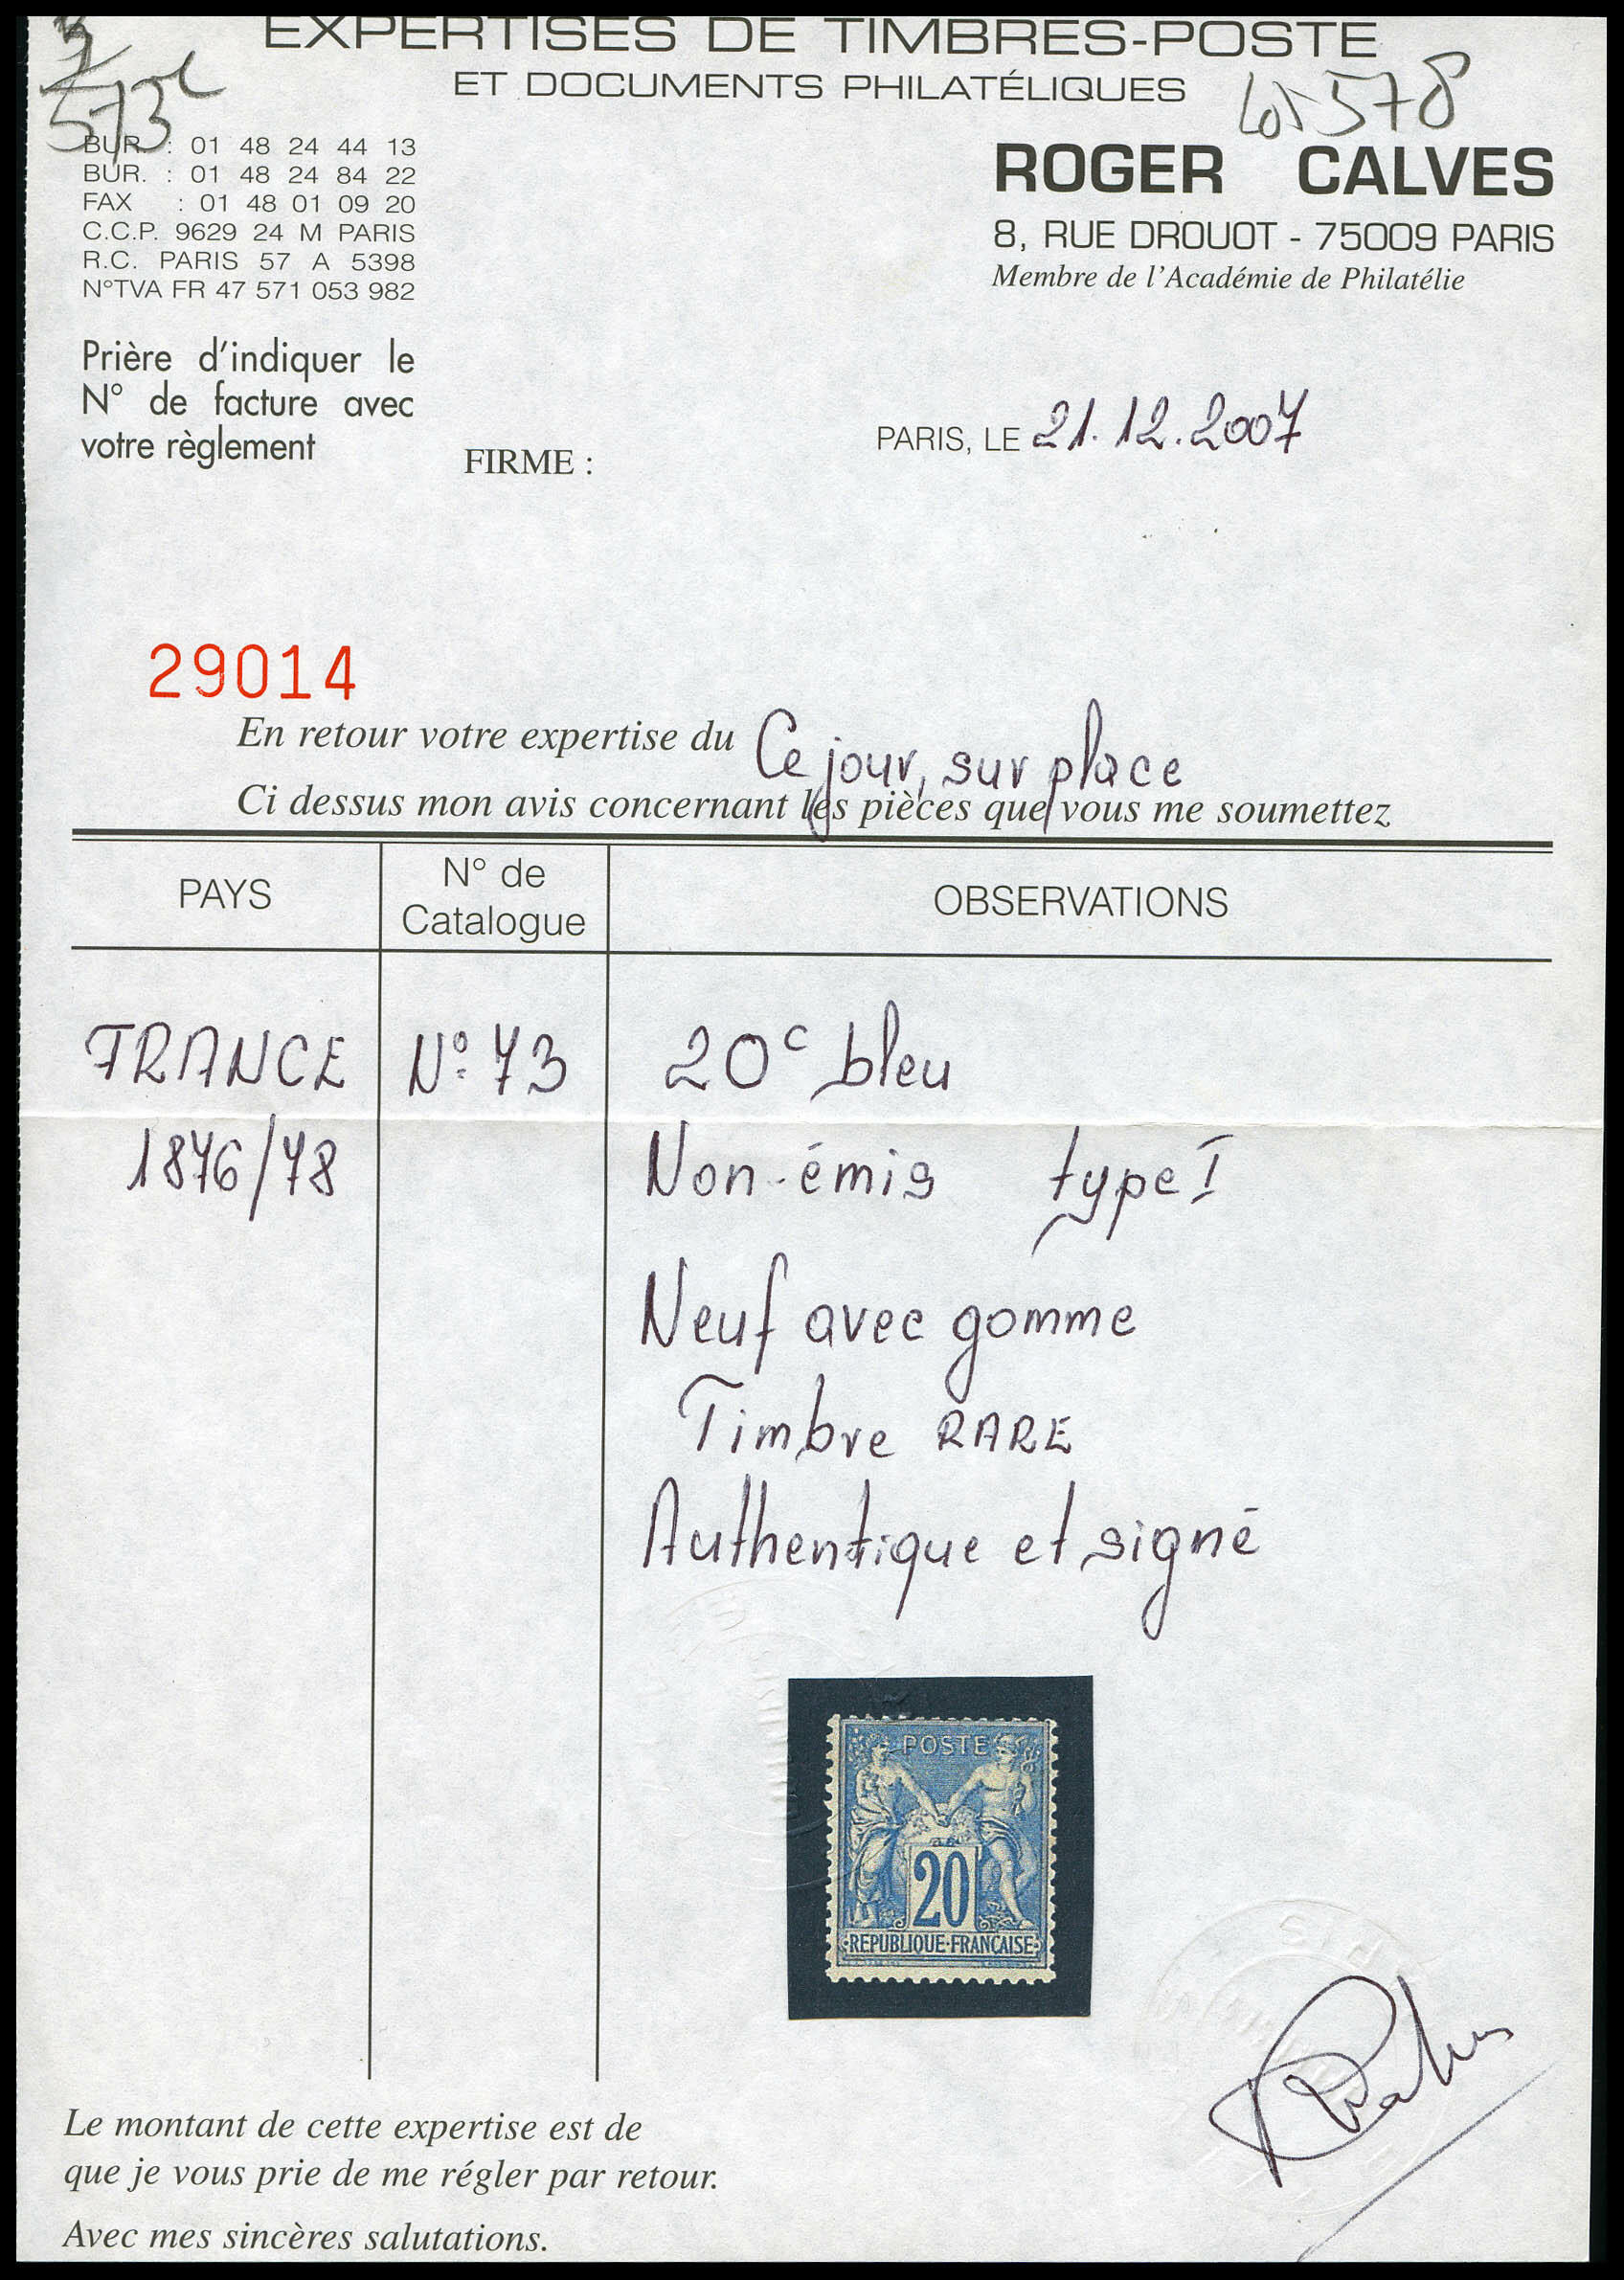 EXPERTISES DE TIMBRES-POSTE
ET DOCUMENTS PHILATÉLIQUES
573
Lot 578
BUR. : 01 48 24 44 13
BUR. : 01 48 24 84 22
FAX : 01 48 01 09 20
C.C.P. 9629 24 M PARIS
R.C. PARIS 57 A 5398
N°TVA FR 47 571 053 982
ROGER CALVES
8, RUE DROUOT - 75009 PARIS
Membre de l'Académie de Philatélie
Prière d'indiquer le
N° de facture avec
votre règlement
FIRME :
PARIS, LE 21.12.2007
29014
En retour votre expertise du Ce jour, sur place
Ci dessus mon avis concernant les pièces que vous me soumettez
PAYS
N° de
Catalogue
OBSERVATIONS
FRANCE N° 73 20c bleu
1876/78 Non-émis type I
Neuf avec gomme
Timbre RARE
Authentique et signé
POSTE
20
REPUBLIQUE·FRANÇAISE
Le montant de cette expertise est de
que je vous prie de me régler par retour.
Avec mes sincères salutations.